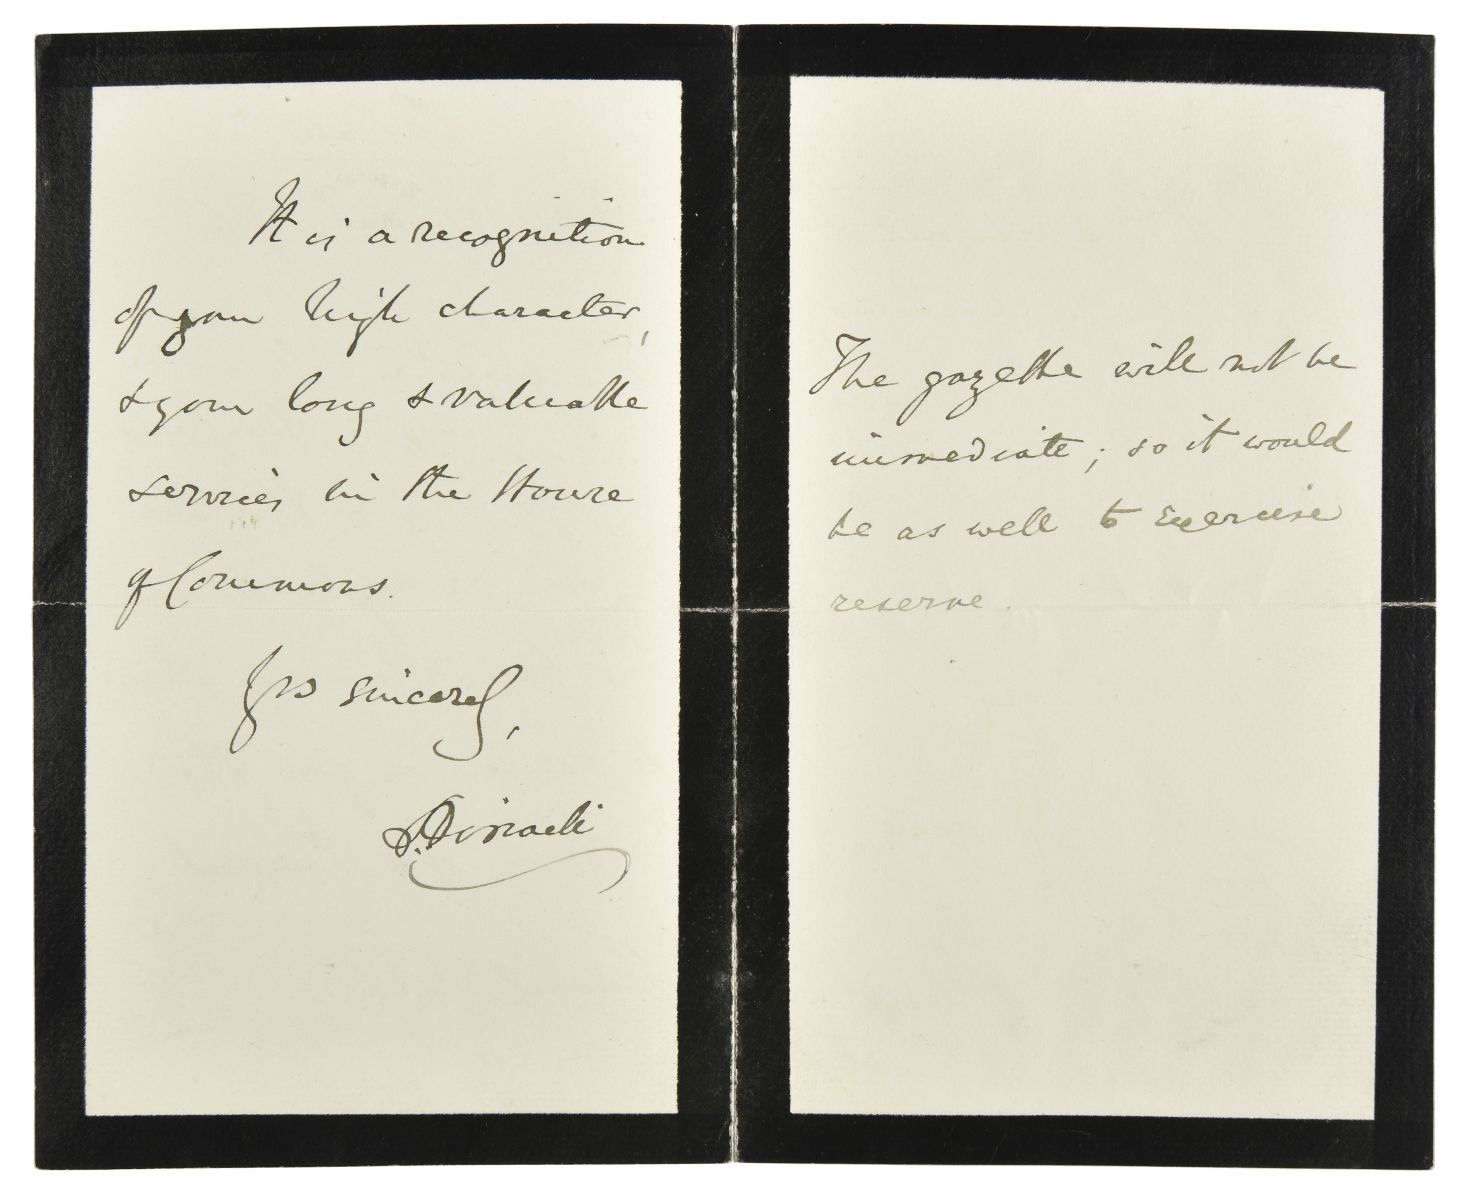 It is a recognition
of your high character,
& your long & valuable
services in the House
of Commons.
Yrs sincerely,
B. Disraeli
The gazette will not be
immediate; so it would
be as well to exercise
reserve.